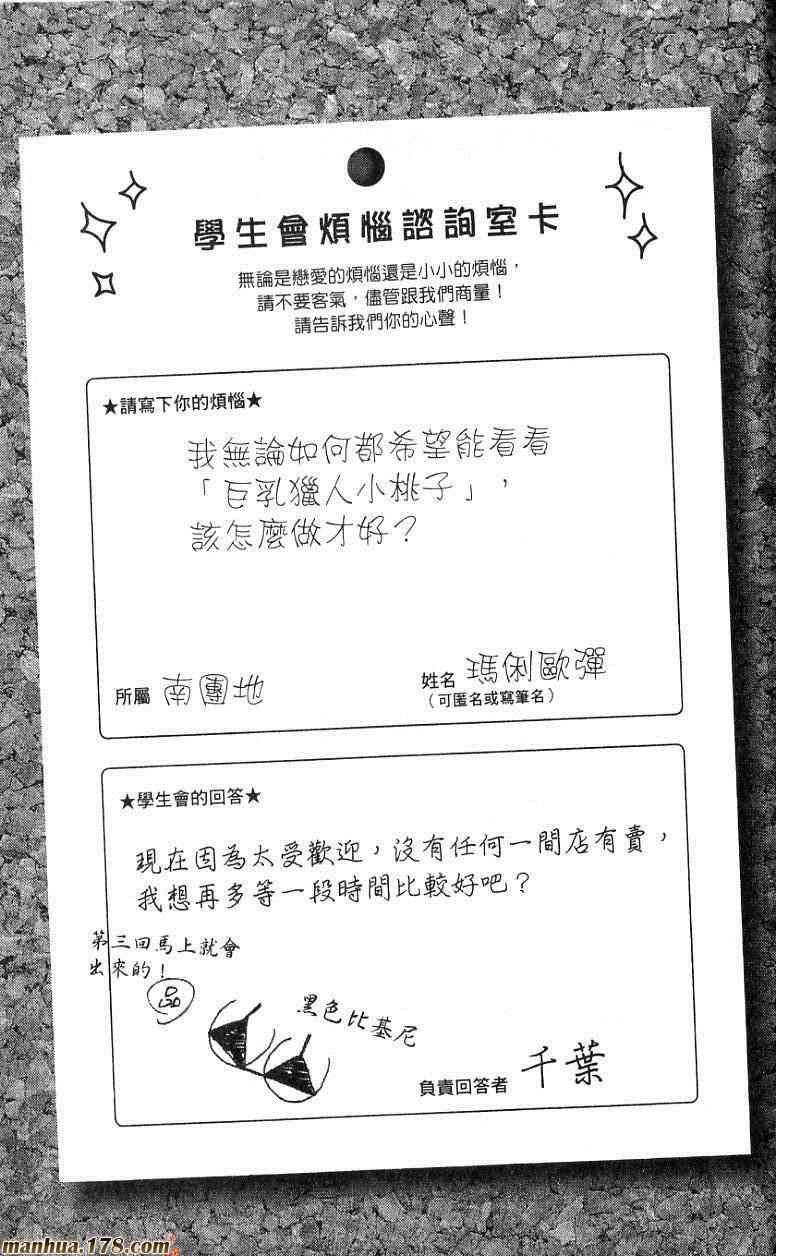 學生會煩惱諮詢室卡
無論是戀愛的煩惱還是小小的煩惱，
請不要客氣，儘管跟我們商量！
請告訴我們你的心聲！
★請寫下你的煩惱★
我無論如何都希望能看看
「巨乳獵人小桃子」，
該怎麼做才好？
所屬 南團地
姓名 瑪俐歐彈
（可匿名或寫筆名）
★學生會的回答★
現在因為太受歡迎，沒有任何一間店有賣，
我想再多等一段時間比較好吧？
第三回馬上就會
出來的！
品
黑色比基尼
負責回答者 千葉
manhua.178.com